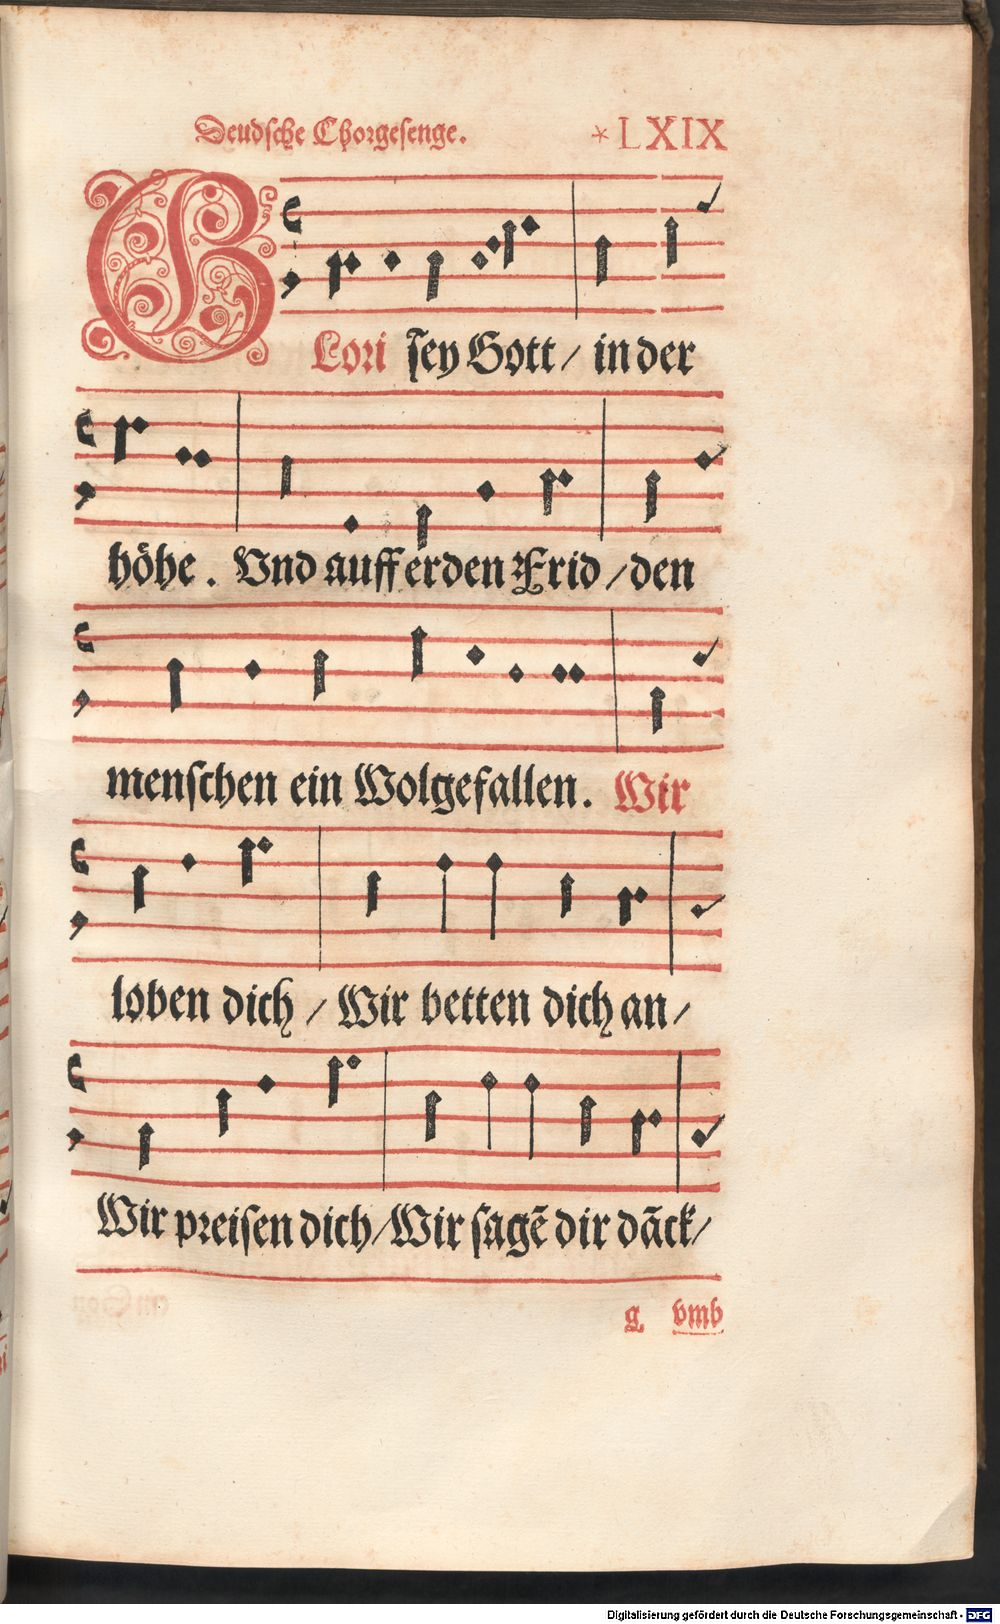 Deudsche Chorgesenge. *LXIX
GLori sey Gott / in der
höhe. Vnd auff erden Frid / den
menschen ein Wolgefallen. Wir
loben dich / Wir betten dich an /
Wir preisen dich / Wir sagẽ dir dãck /
g vmb
Digitalisierung gefördert durch die Deutsche Forschungsgemeinschaft - DFG